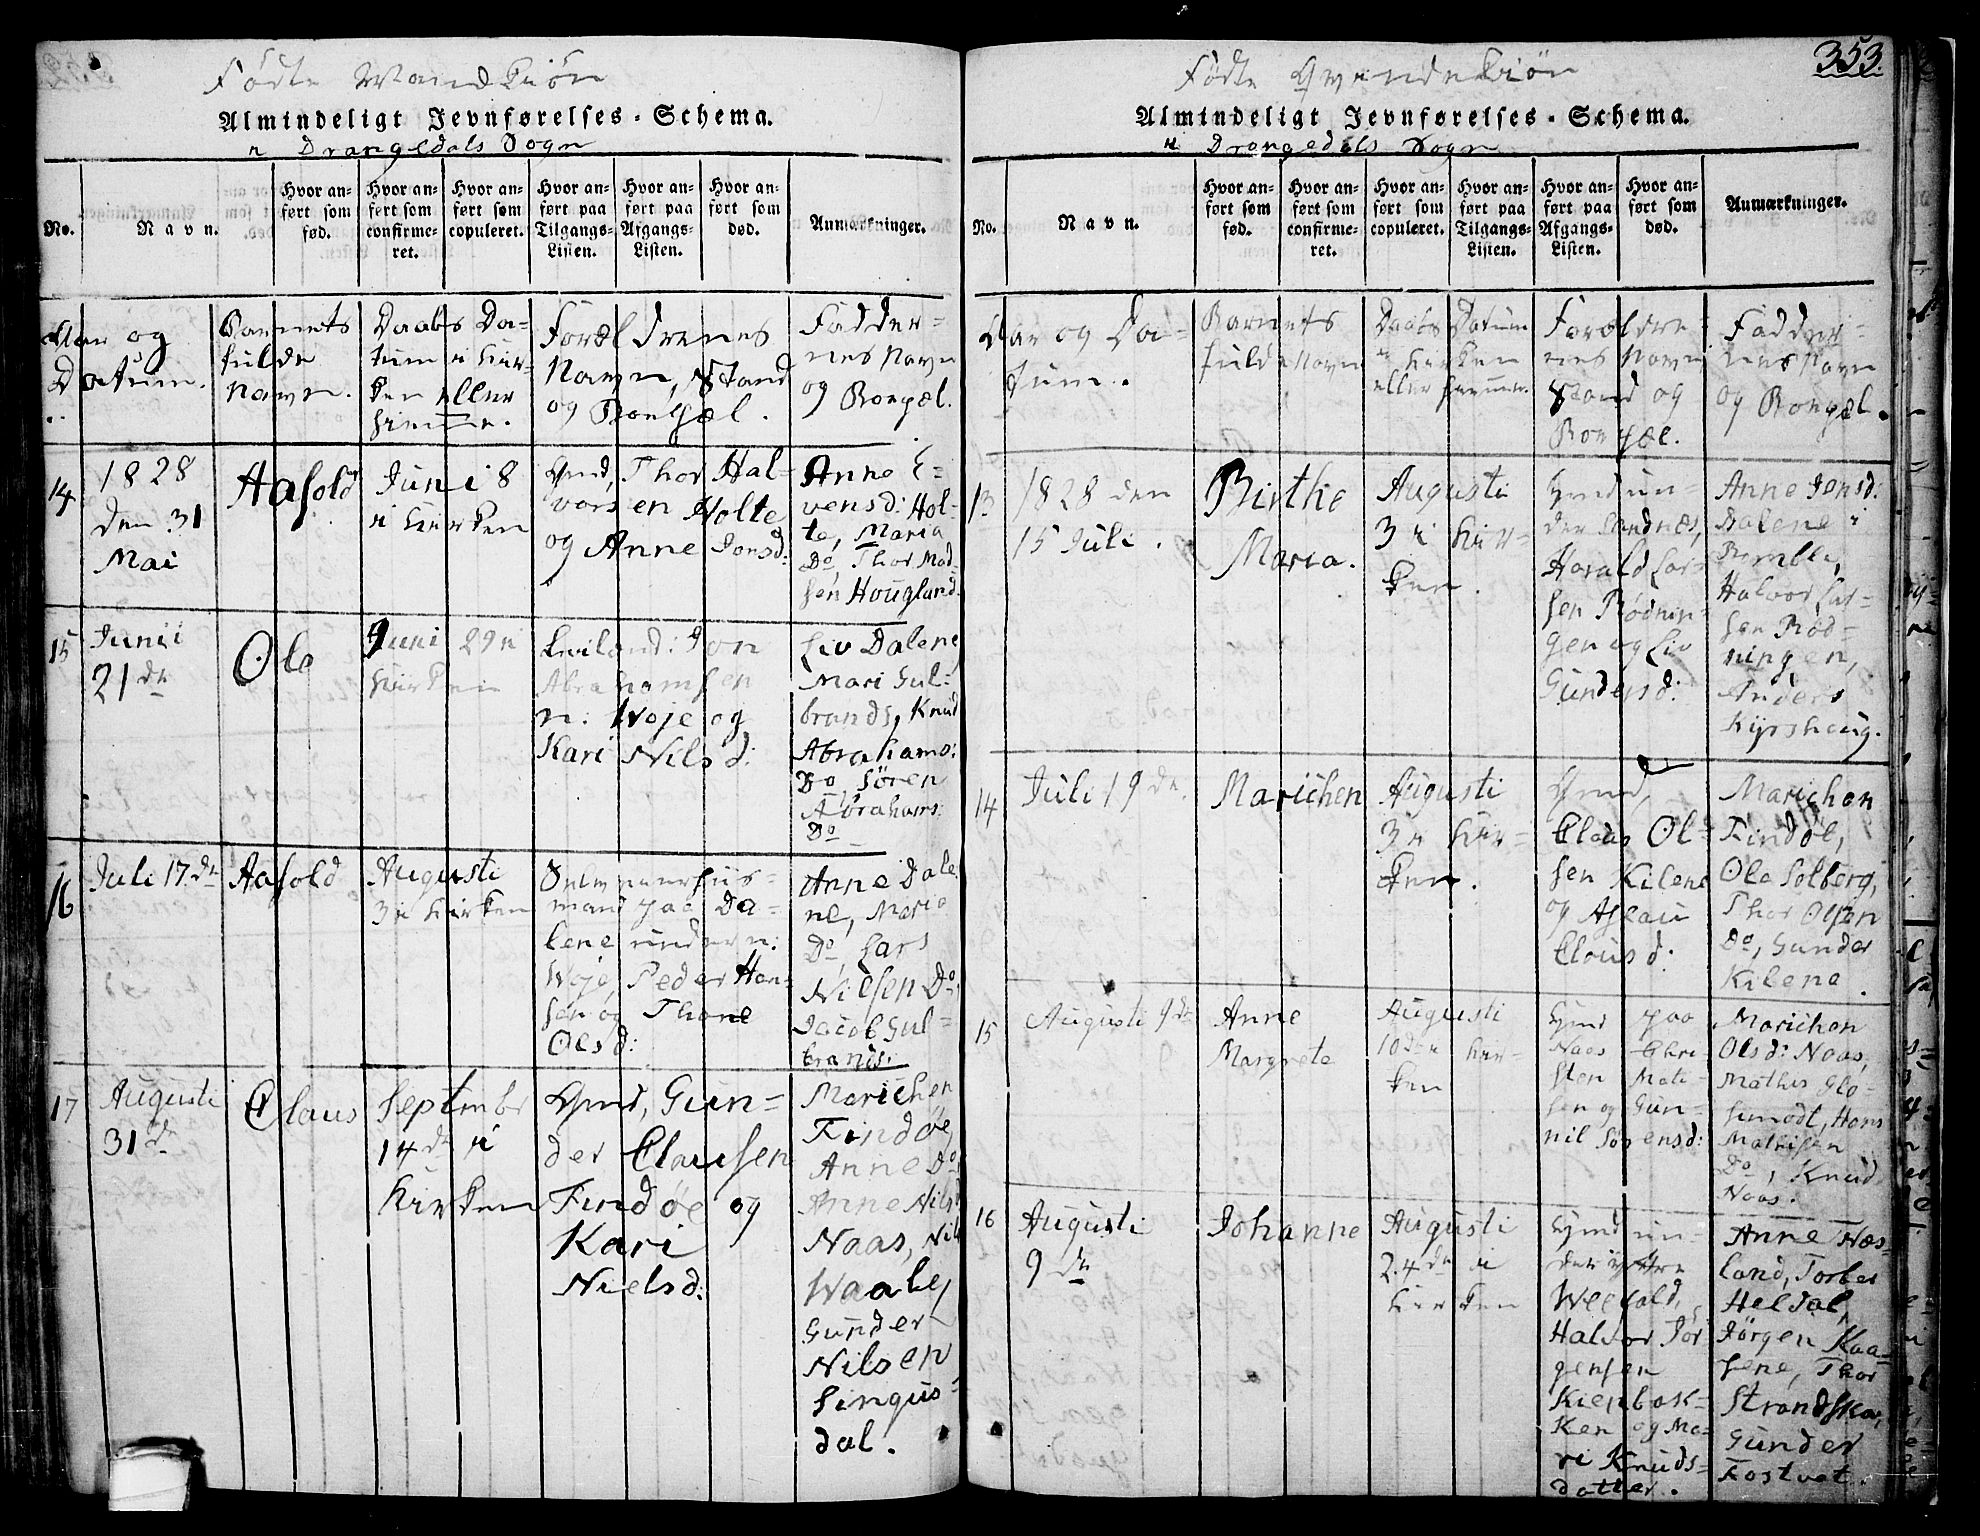 Fødte Mandkiøn
Almindeligt Jevnførelses-Schema.
i Drangedals Sogn
No.
Navn.
Hvor an-
ført som
fød.
Hvor an-
ført som
confirme-
ret.
Hvor an-
ført som
copuleret.
Hvor an-
ført paa
Tilgangs-
Listen.
Hvor an-
ført paa
Afgangs-
Listen.
Hvor an-
ført som
død.
Anmærkninger.
Aar og
Datum.
Barnets
fulde
Navn.
Daabs Da-
tum i Kir-
ken eller
hiemme.
Forældrenes
Navn, Stand
og Bopæl.
Fadder-
nes Navn
og Bopæl.
14
1828
den 31
Mai
Aasold
Juni 8
i Kirken
Gmd, Thor Hal-
vorsen Holte
og Anne Jonsd:
Anne E-
vensd: Hol-
te, Maria
Do, Thor Mad-
sen Hougland.
15
Junii
21de
Ole
Juni 29 i
Kirken
Jon
Abrahamsen
n: Woje og
Kari Nilsd:
Liv Dalene
Mari Gul-
brands, Knud
Abrahams:
Do, Søren
Abrahams:
Do
16
Juli 17de
Aasold
Augusti
3 i Kirken
mand paa Da-
lene under n:
Woje, Peder Han-
sen og Thone
Olsd:
Anne Dale-
ne, Maria
Do, Lars
Nilsen Do,
Jacob Gul-
brands:
17
Augusti
31de
Claus
Septembr
14de i
Kirken
Gmd, Gun-
der Clausen
Findøe og
Kari
Nielsd:
Marichen
Findøe,
Anne Do
Anne Nilsd
Naas, Nils
Waale,
Gunder
Nilsen
Singus-
dal.
353.
Fødte Qvindekiøn
Almindeligt Jevnførelses-Schema.
i Drangedals Sogn
No.
Navn.
Hvor an-
ført som
fød.
Hvor an-
ført som
confirme-
ret.
Hvor an-
ført som
copuleret.
Hvor an-
ført paa
Tilgangs-
Listen.
Hvor an-
ført paa
Afgangs-
Listen.
Hvor an-
ført som
død.
Anmærkninger.
Aar og Da-
tum.
Barnets
fulde Navn
Daabs Datum
i Kirken
eller hiemme.
Forældre-
nes Navn
Stand og
Bopæl.
Fadder-
nes Navn
og Bopæl.
13
1828 den
15 Juli.
Birthe
Maria.
Augusti
3 i Kir-
ken.
Gmd un-
der Sandnæs,
Harald Lar-
sen Rødnin-
gen og Liv
Gundersd:
Anne Jensd:
Dalene i
Bamble,
Halvor Lar-
sen Rød-
ningen,
Anders
Kijrshaug.
14
Juli 19de.
Marichen
Augusti
3 i Kir-
ken.
Gmd,
Claus Ol-
sen Kilene
og Aslau
Clausd:
Marichen
Findøe,
Ole Solberg,
Thor Olsen
Do, Gunder
Kilene.
15
Augusti 9de
Anne
Margrete
Augusti
10de i Kir-
ken
Gmd paa
Naas Chri-
sten Mati-
sen og Gun-
nil Sørensd:
Marichen
Olsd: Naas,
Mathis Glo-
smodt, Hans
Mathisen
Do, Knud
Naas.
16
Augusti
9de
Johanne
Augusti
24de i
Kirken
Gmd un-
der ijttre
Weefald,
Halvor Jør-
gensen
Kienbak-
ken og Ma-
ri Knuds-
datter.
Anne Næs-
land, Torber
Heldal,
Jørgen Kaa-
sene, Thor
Strandskar,
Gunder
Tostvet.